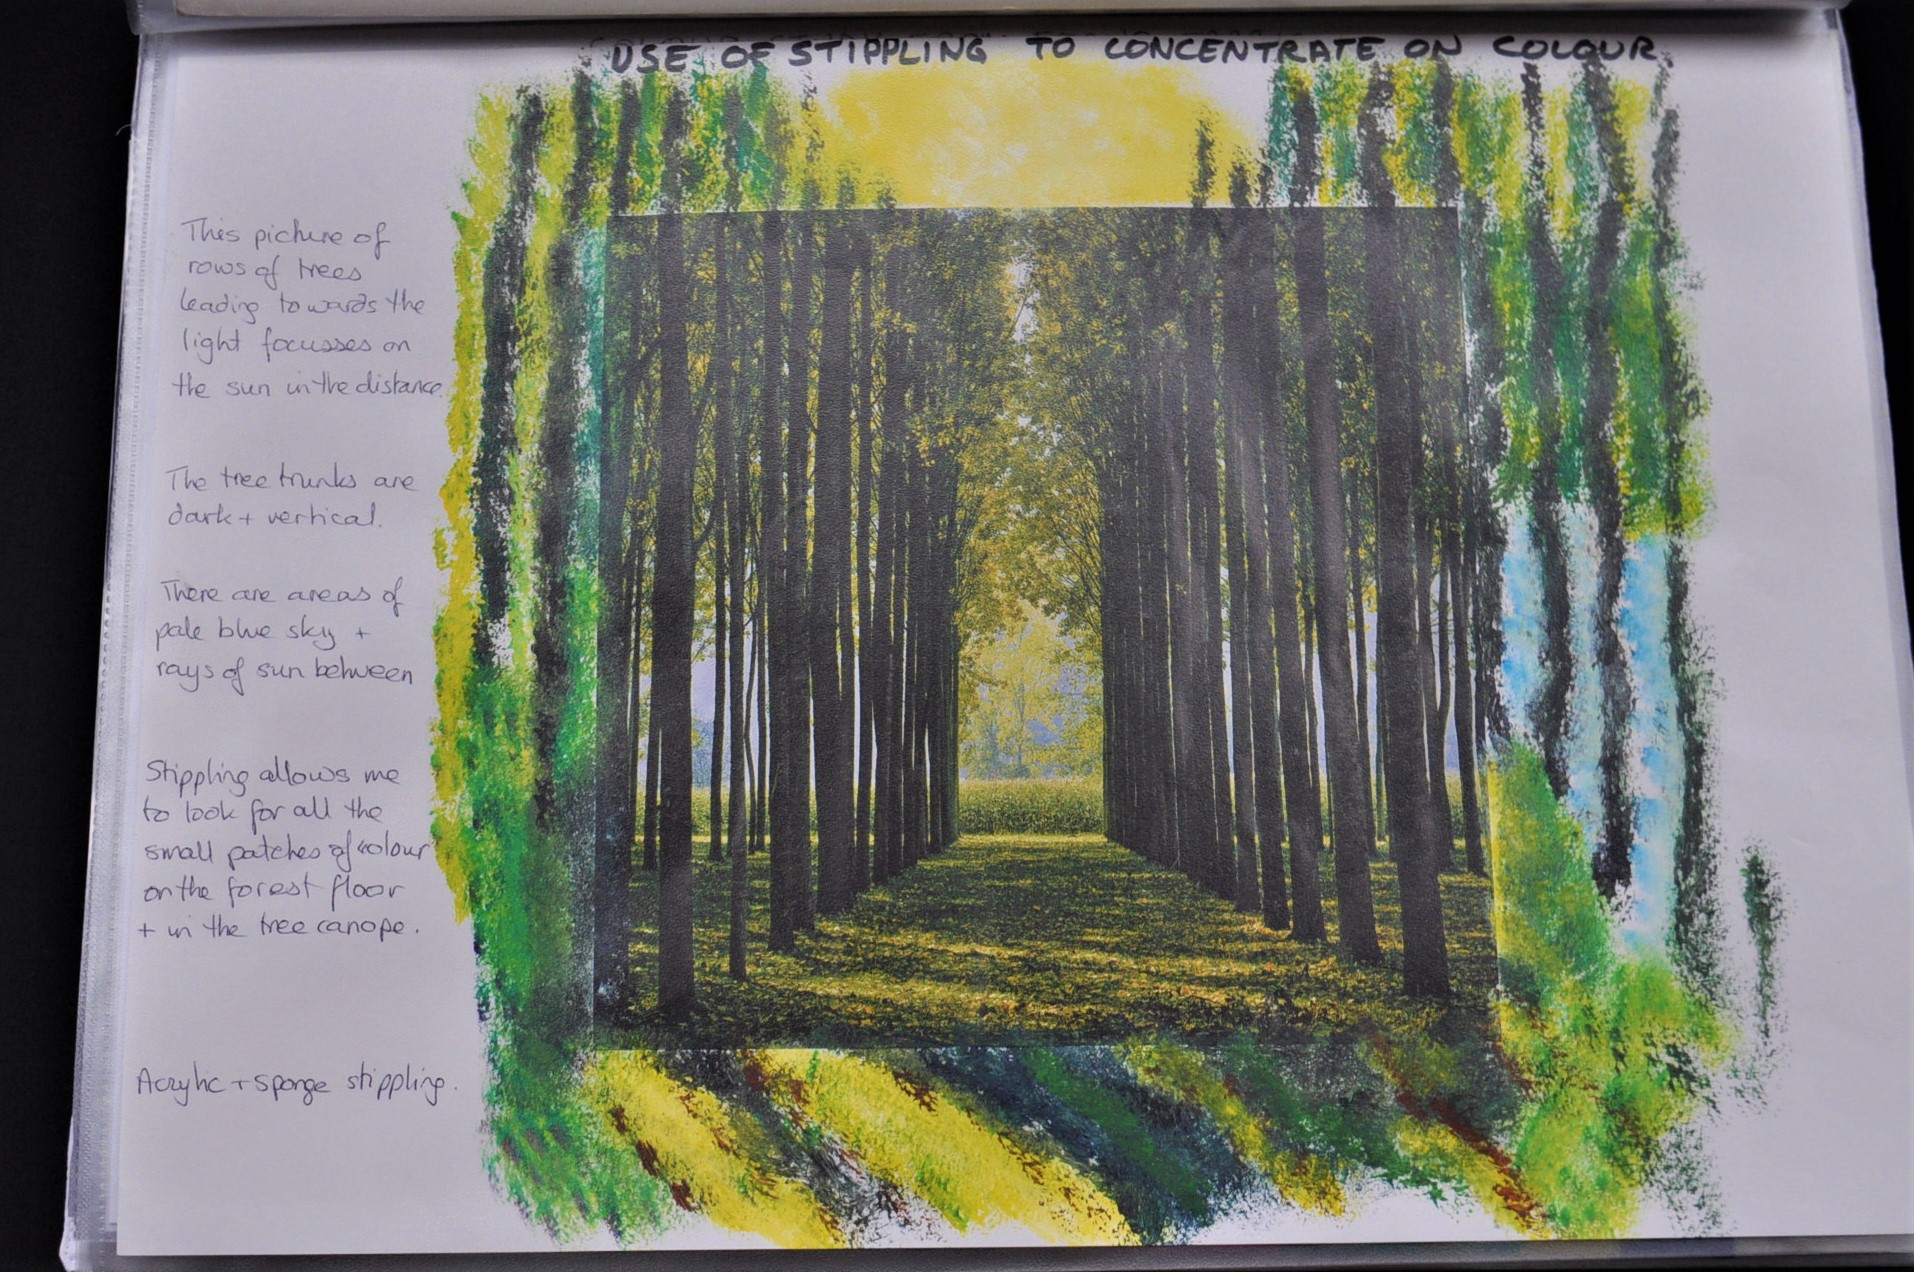 USE OF STIPPLING TO CONCENTRATE ON COLOUR.
This picture of
rows of trees
leading towards the
light focusses on
the sun in the distance.
The tree trunks are
dark + vertical.
There are areas of
pale blue sky +
rays of sun between
Stippling allows me
to look for all the
small patches of colour
on the forest floor
+ in the tree canope.
Acrylic + sponge stippling.